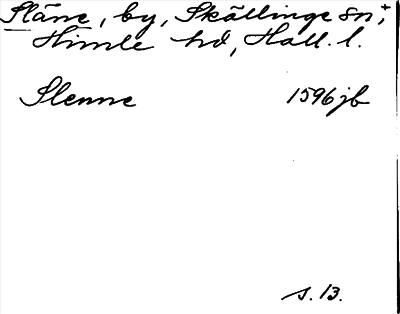 Släne, by, Skällinge sn,+
Himle hd, Hall. l.
Slenne 1596 jb
s. 13.